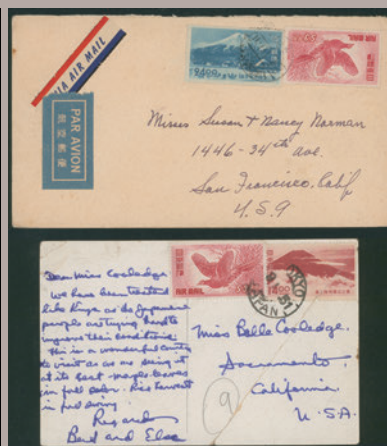 VIA AIR MAIL
PAR AVION
航空郵便
24.00
AIR MAIL
Misses Susan & Nancy Norman
1446-34th Ave.
San Francisco, Calif
U.S.A
Dear Miss Cooledge.
We have been treated
like Kings as do Japanese
people are trying hard to
improve their conditions.
This is a wonderful country
to visit as we are seeing it
at its best - maple leaves
in full color. Rice harvest
in full swing.
Regards
Bend and Elsa
AIR MAIL
JAPAN
Miss Belle Cooledge.
Sacramento.
California
U.S.A.
9